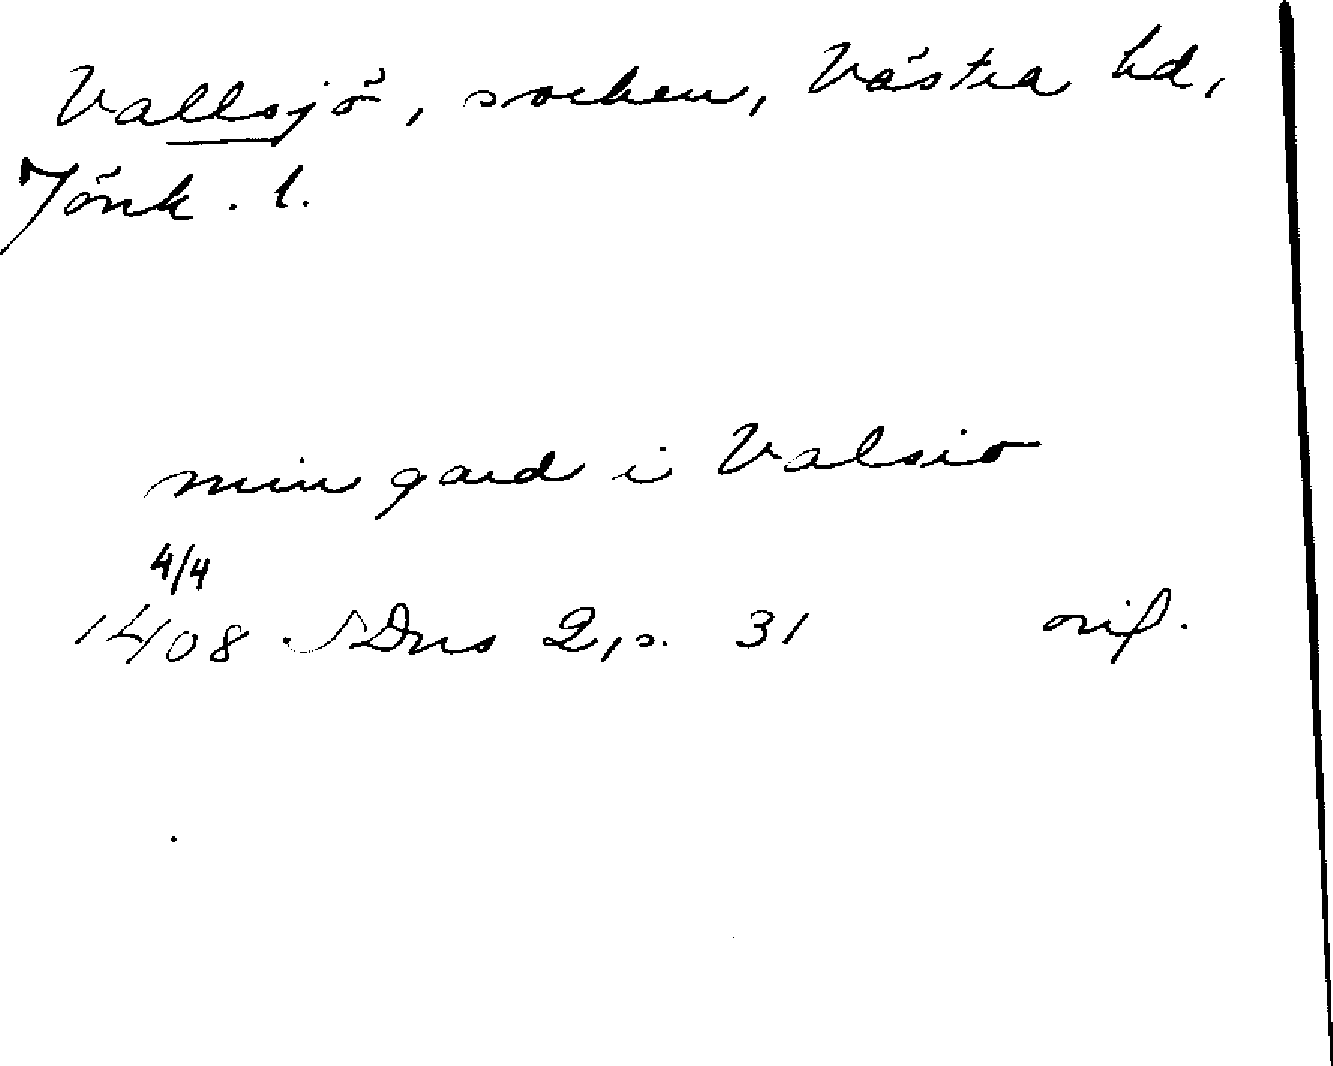 Vallsjö, socken, Västra hd,
Jönk. l.
min gard i Valsio
4/4
1408 SDns 2, s. 31 orig.